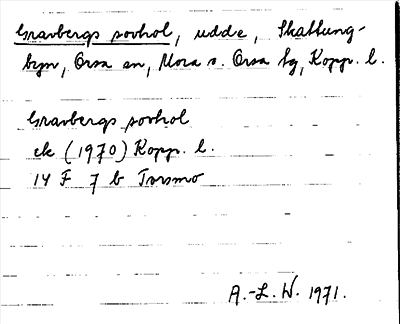 Gravbergs sovhol, udde, Skattung-
byn, Orsa sn, Mora o. Orsa tg, Kopp. l.
Gravbergs sovhol
ek (1970) Kopp. l.
14 F 7 b Torsmo
A.-L. W. 1971.